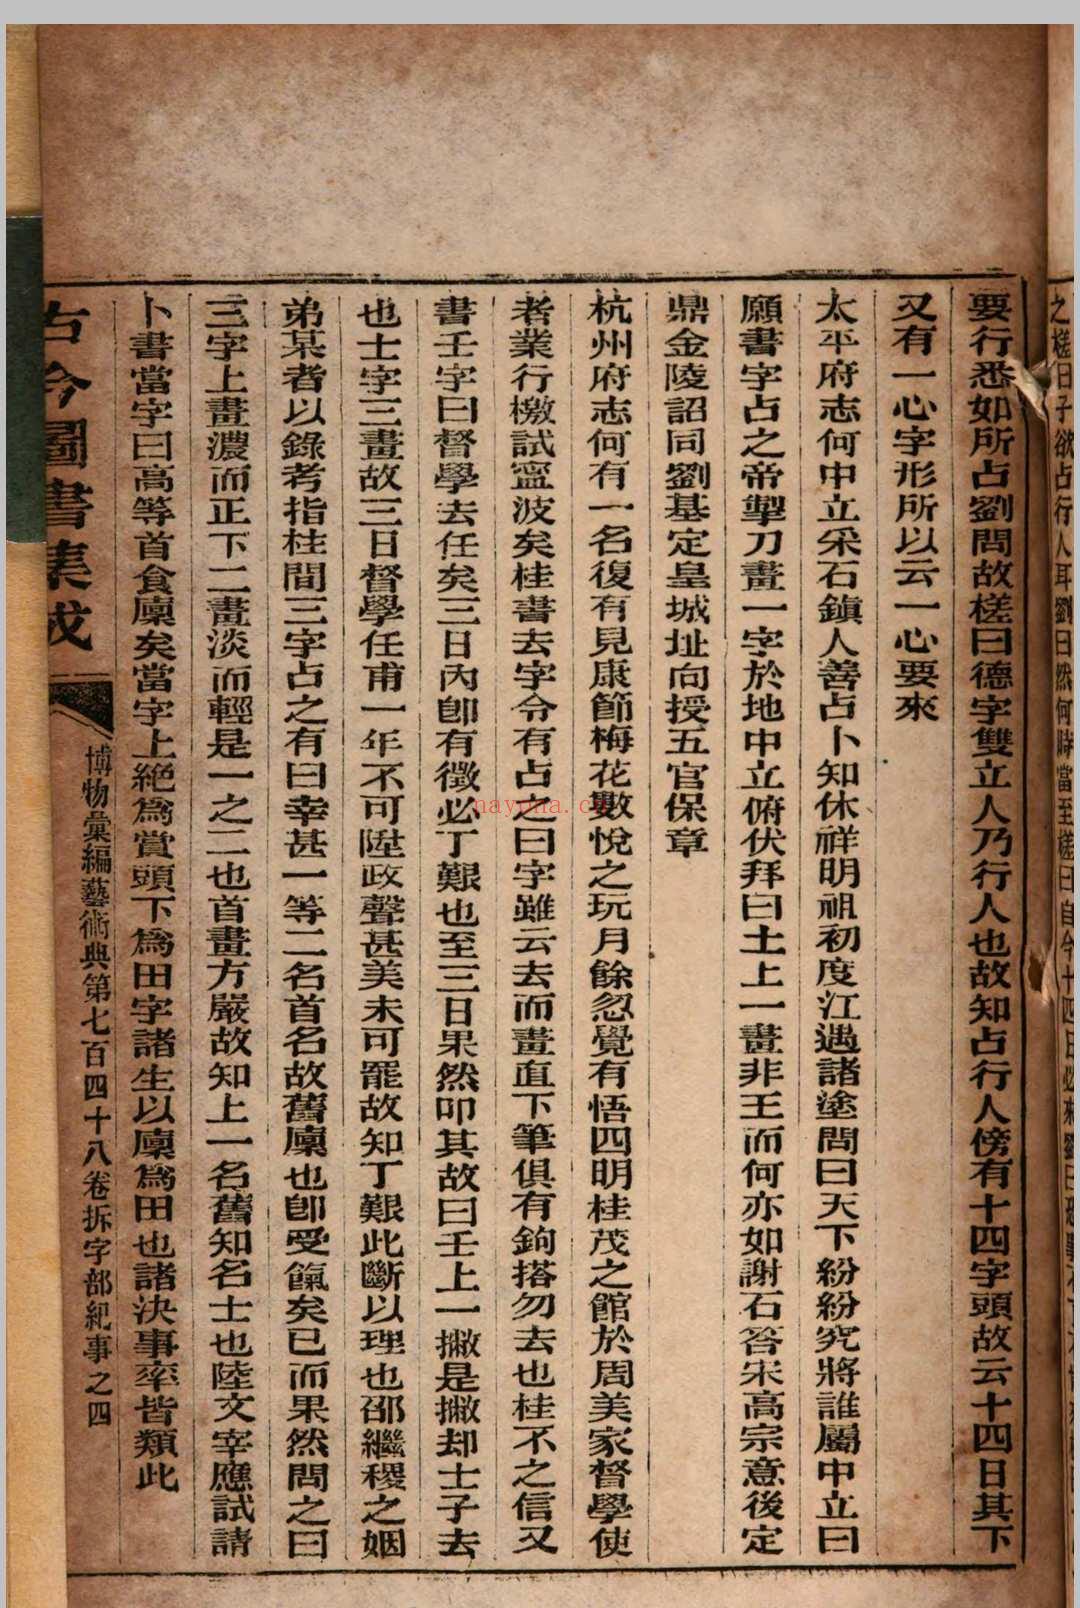 之槎曰子欲占行人耳劉曰然何時當至槎曰自今十四日必來劉曰
要行悉如所占劉問故槎曰德字雙立人乃行人也故知占行人傍有十四字頭故云十四日其下
又有一心字形所以云一心要來
太平府志何中立采石鎮人善占卜知休祥明祖初度江遇諸塗問曰天下紛紛究將誰屬中立曰
願書字占之帝掣刀畫一字於地中立俯伏拜曰土上一畫非王而何亦如謝石答宋高宗意後定
鼎金陵詔同劉基定皇城址向授五官保章
杭州府志何有一名復有見康節梅花數悅之玩月餘忽覺有悟四明桂茂之館於周美家督學使
者業行檄試寧波矣桂書去字令有占之曰字雖云去而畫直下筆俱有鉤搭勿去也桂不之信又
書壬字曰督學去任矣三日內卽有徵必丁艱也至三日果然叩其故曰壬上一撇是撇却士子去
也士字三畫故三日督學任甫一年不可陞政聲甚美未可罷故知丁艱此斷以理也邵繼稷之姻
弟某者以錄考指桂間三字占之有曰幸甚一等二名首名故舊廩也卽受餼矣已而果然問之曰
三字上畫濃而正下二畫淡而輕是一之二也首畫方嚴故知上一名舊知名士也陸文宰應試請
卜書當字曰高等首食廩矣當字上絕爲賞頭下爲田字諸生以廩爲田也諸決事率皆類此
古今圖書集成
博物彙編藝術典第七百四十八卷拆字部紀事之四